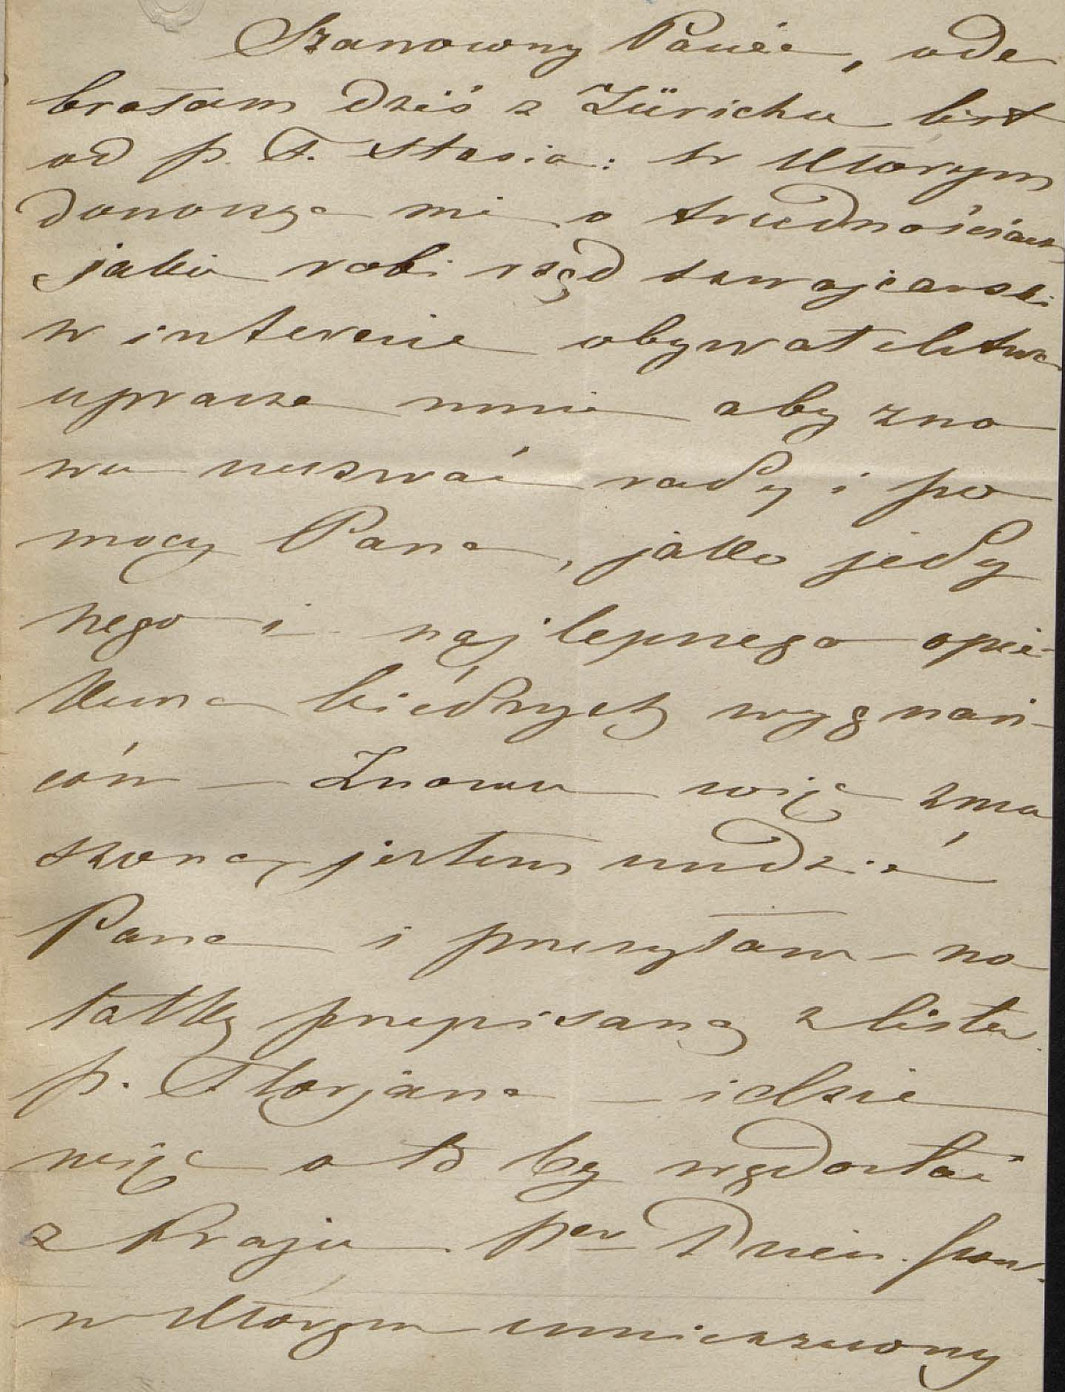 Szanowny Panie, ode
brałam dziś z Zürichu list
od p. F. Stasia: w którym
donosząc mi o trudnościach
jakie robi rząd szwajcarski
w interesie obywatelstwa
uprasza mnie aby zno
wu wezwać rady i po
mocy Pana, jako jedy
nego i najlepszego opie-
kuna biédnych wygnań-
ców – Znowu więc zmu
szoną jestem nudzić
Pana i przesyłam – no
tatkę przepisaną z listu
p. Florjana – idzie
więc o to by wydostać
z Kraju per Dzien.
w którym umieszczony